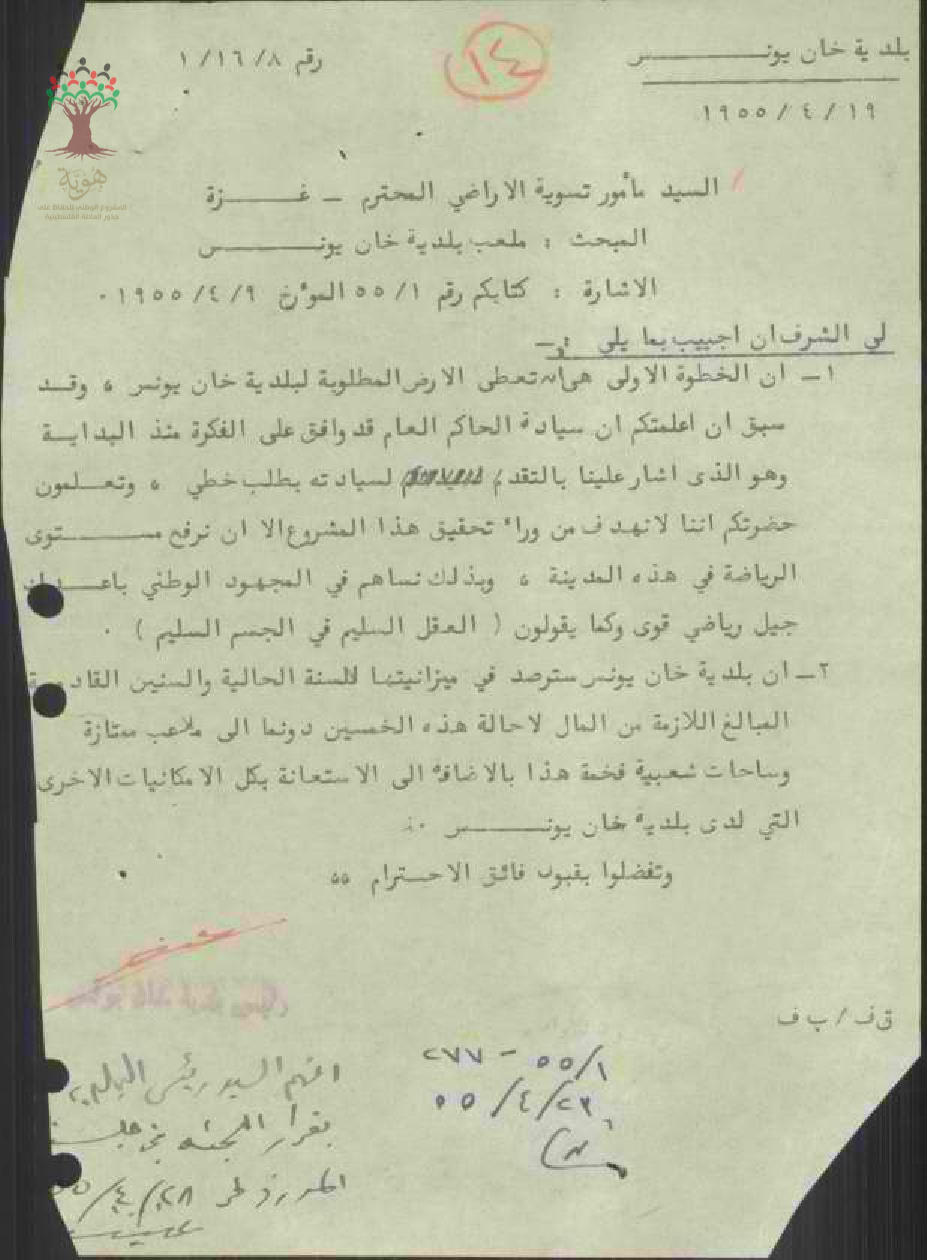 بلدية خان يونـــــــس
رقم ١/١٦/٨
١٤
١٩/٤/١٩٥٥
هوية
المشروع الوطني للحفاظ على
جذور العائلة الفلسطينية
السيد مأمور تسوية الاراضي المحترم – غــــــزة
المبحث : ملعب بلدية خان يونـــــــس
الاشارة : كتابكم رقم ٥٥/١ المؤرخ ١٩٥٥/٤/٩ ٠
لي الشرف ان اجيب بما يلي :ـ
١ــ ان الخطوة الاولى هي ان تعطى الارض المطلوبة لبلدية خان يونس ، وقـد
سبق ان اعلمتكم ان سيادة الحاكم العام قد وافق على الفكرة منذ البدايـة
وهو الذى اشار علينا بالتقدم لسيادته بطلب خطي ، وتعـلمون
حضرتكم اننا لانهدف من وراء تحقيق هذا المشروع الا ان نرفع مســـــتوى
الرياضة في هذه المدينة ، وبذلك نساهم في المجهود الوطني باعــداد
جيل رياضي قوى وكما يقولون ( العقل السليم في الجسم السليم ) ٠
٢ــ ان بلدية خان يونس سترصد في ميزانيتها للسنة الحالية والسنين القادمة
المبالغ اللازمة من المال لاحالة هذه الخمسين دونما الى ملاعب ممتازة
وساحات شعبية فخمة هذا بالاضافة الى الاستعانة بكل الامكانيات الاخرى
التي لدى بلدية خان يونــــــس ٠
وتفضلوا بقبول فائق الاحــترام ٥٥
رئيس بلدية خان يونس
ق ف / ب ف
٥٥/١ – ٢٧٧
السيد رئيس البلدية
بقرار اللجنة
٢٨/٤/٥٥